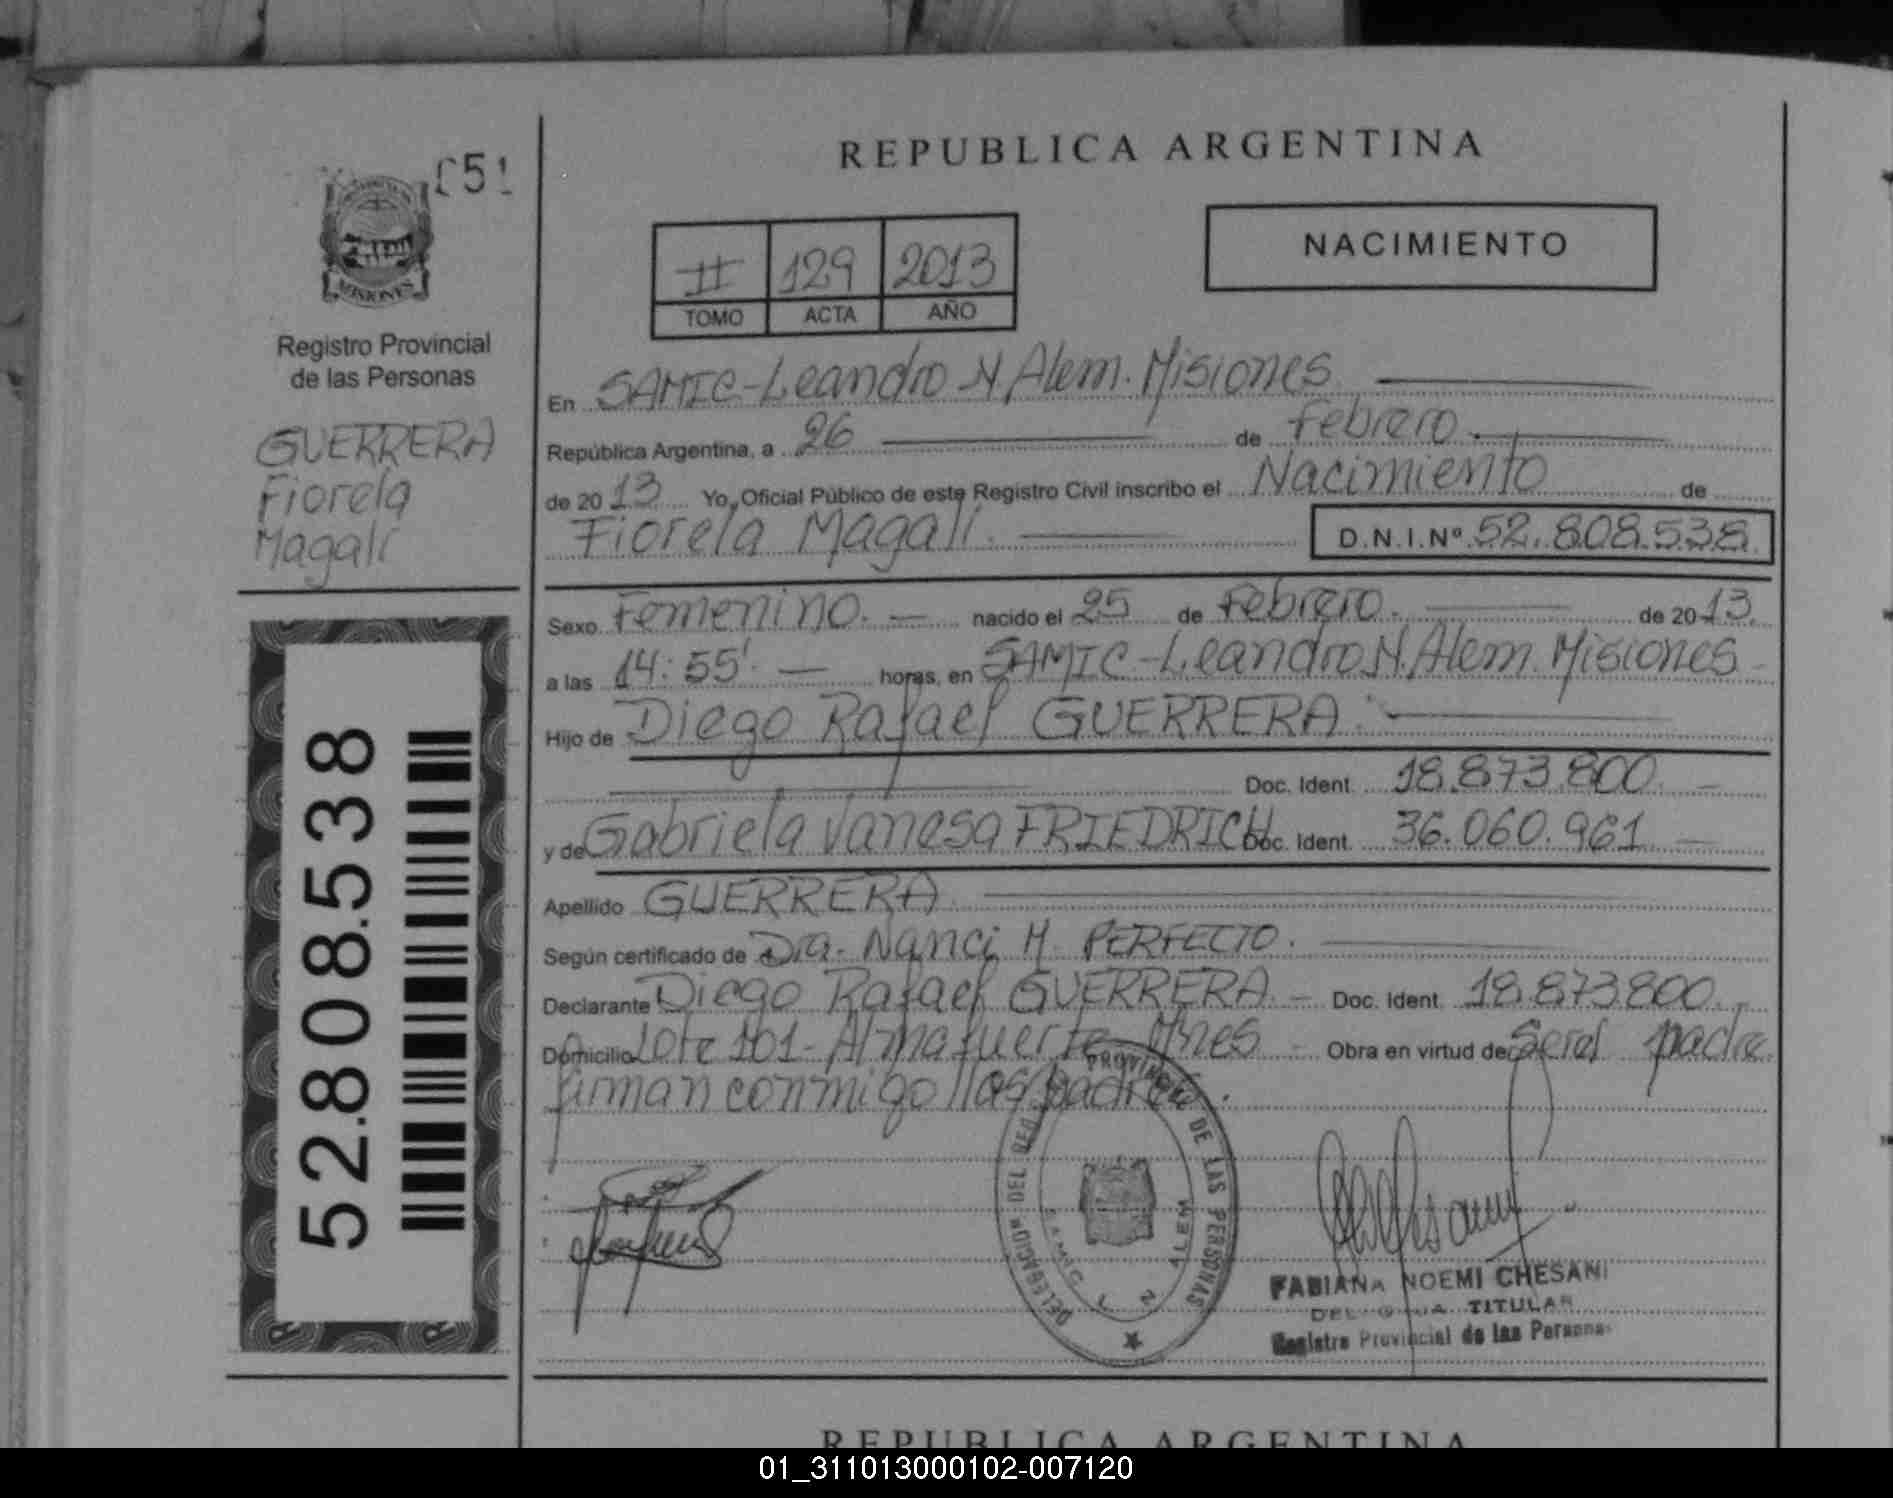 051
MISIONES
Registro Provincial
de las Personas
GUERRERA
Fiorela
Magalí
52.808.538
REPUBLICA ARGENTINA
II 129 2013
TOMO ACTA AÑO
NACIMIENTO
En SAMIC-Leandro N. Alem. Misiones
República Argentina, a 26 de febrero
de 2013 Yo, Oficial Público de este Registro Civil inscribo el Nacimiento de
Fiorela Magalí. D.N.I.Nº 52.808.538
Sexo Femenino. nacido el 25 de Febrero. de 2013.
a las 14:55' horas, en SAMIC-Leandro N. Alem. Misiones
Hijo de Diego Rafael GUERRERA.
Doc. Ident. 18.873.800.
y de Gabriela Vanesa FRIEDRICH Doc. Ident. 36.060.961
Apellido GUERRERA
Según certificado de Dra. Nanci M. PERFECTO.
Declarante Diego Rafael GUERRERA Doc. Ident. 18.873.800.
Domicilio Lote 101-Almafuerte Mnes Obra en virtud de Ser el padre
firman conmigo los padres.
DELEGACION DEL REG. PROVINCIAL DE LAS PERSONAS
SAMIC L N ALEM
FABIANA NOEMI CHESANI
DELEGADA TITULAR
Registro Provincial de las Personas
REPUBLICA ARGENTINA
01_311013000102-007120